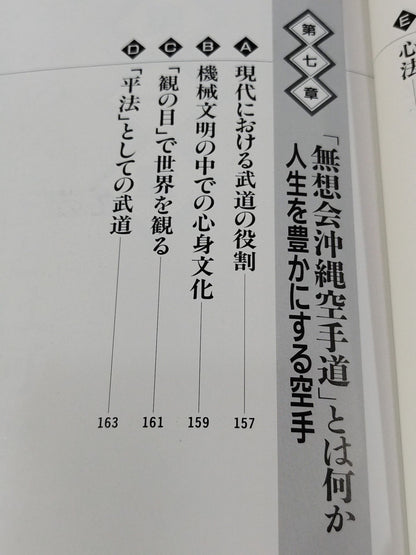 E 心法
第七章
「無想会沖縄空手道」とは何か
人生を豊かにする空手
A 現代における武道の役割 157
B 機械文明の中での心身文化 159
C 「観の目」で世界を観る 161
D 「平法」としての武道 163